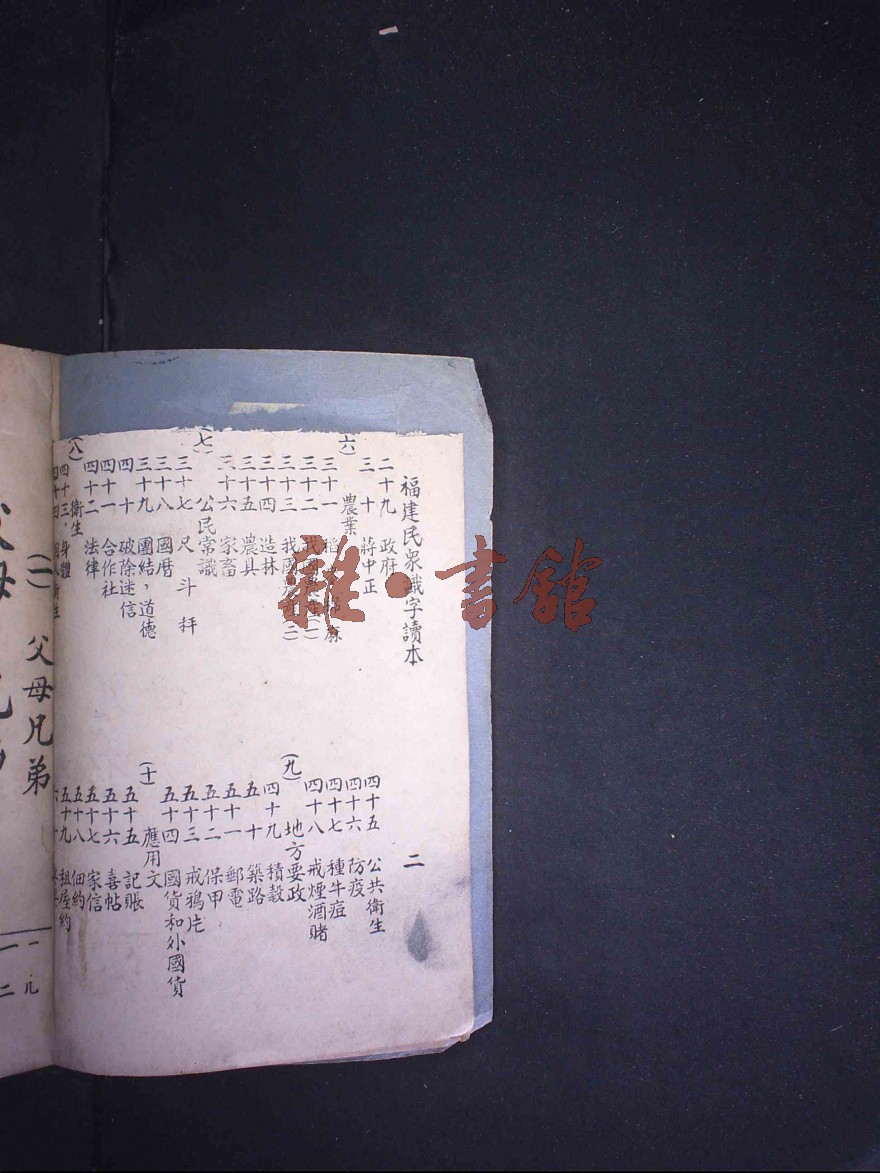 福建民衆識字讀本
二
二十九 政府
三十 蔣中正
(六) 農業
三十一
三十二 我國
三十三 我國
三十四 造林
三十五 農具
三十六 家畜
(七) 公民常識
三十七 尺斗秤
三十八 國曆
三十九 團結，道德
四十 破除迷信
四十一 合作社
四十二 法律
(八) 衛生
四十三，身體
四十四
四十五 公共衛生
四十六 防疫
四十七 種牛痘
四十八 戒煙酒賭
(九) 地方要政
四十九 積穀
五十 築路
五十一 郵電
五十二 保甲
五十三 戒鴉片
五十四 國貨和外國貨
(十) 應用文
五十五 記賬
五十六 喜帖
五十七 家信
五十八 佃約
五十九 租屋約
父母兄弟
雜·書館